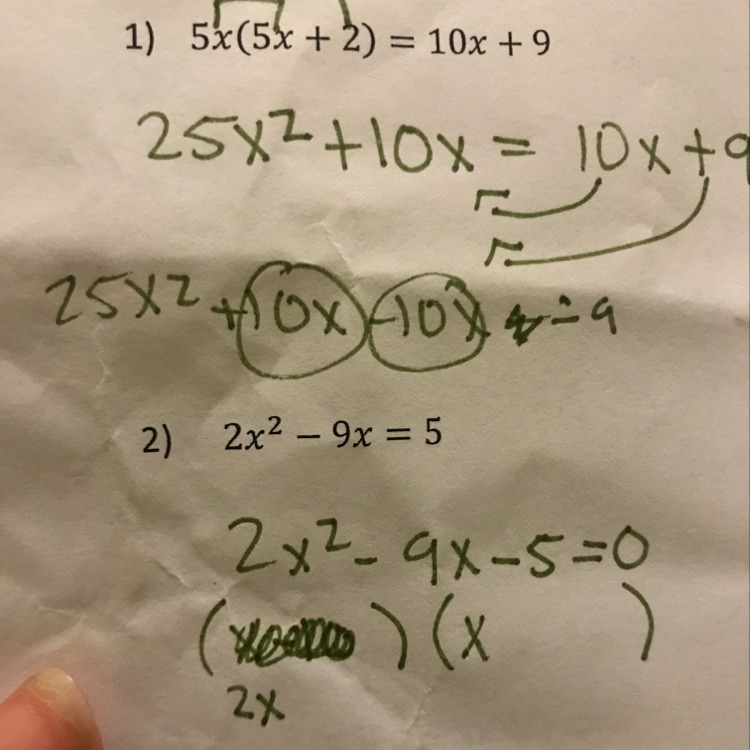 1) 5x(5x + 2) = 10x + 9
25x² + 10x = 10x + 9
25x² + 10x - 10x - 9
2) 2x² − 9x = 5
2x² - 9x - 5 = 0
( ) (x )
2x